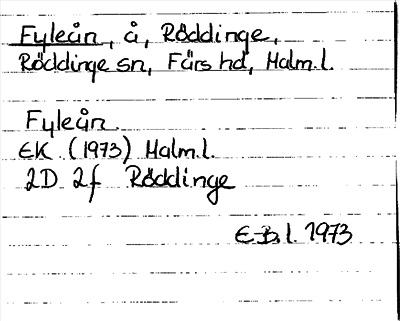 Fyleån, å, Röddinge,
Röddinge sn, Färs hd, Malm.l.
Fyleån
EK (1973) Malm.l.
2D 2f Röddinge
E-B.l. 1973